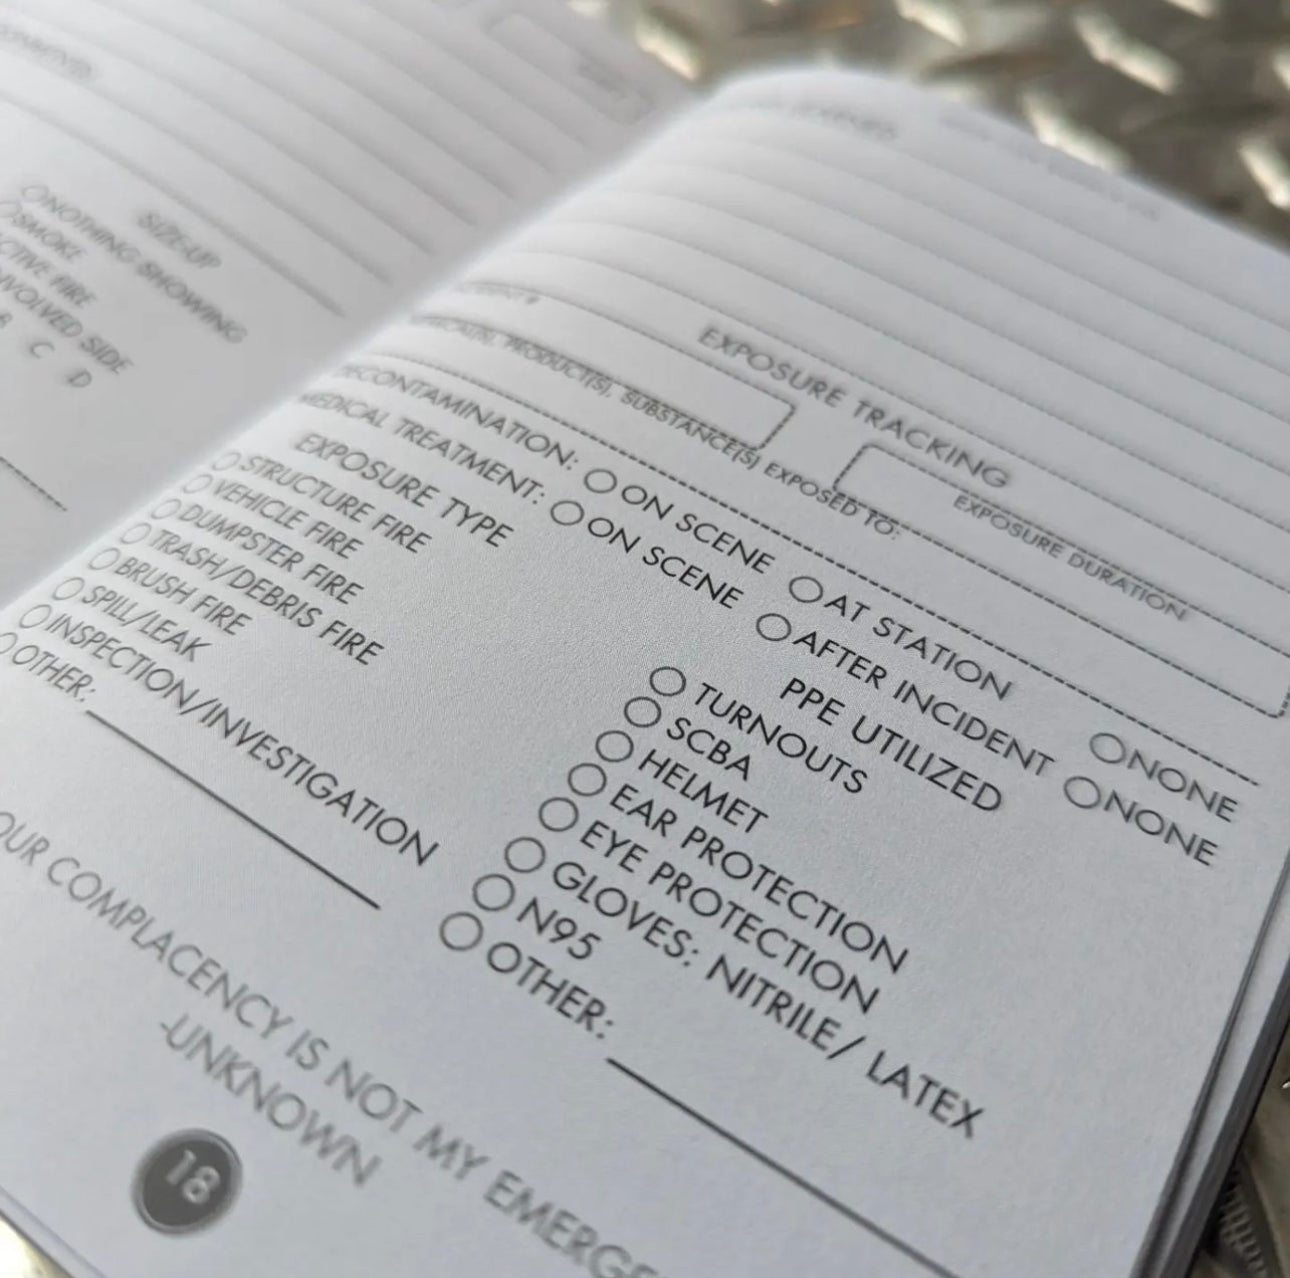 SIZE-UP
NOTHING SHOWING
SMOKE
CTIVE FIRE
NVOLVED SIDE
B C D
EXPOSURE TRACKING
EXPOSURE DURATION
PRODUCT(S), SUBSTANCE(S) EXPOSED TO:
DECONTAMINATION: ON SCENE AT STATION NONE
MEDICAL TREATMENT: ON SCENE AFTER INCIDENT NONE
EXPOSURE TYPE
STRUCTURE FIRE
VEHICLE FIRE
DUMPSTER FIRE
TRASH/DEBRIS FIRE
BRUSH FIRE
SPILL/LEAK
INSPECTION/INVESTIGATION
OTHER:
PPE UTILIZED
TURNOUTS
SCBA
HELMET
EAR PROTECTION
EYE PROTECTION
GLOVES: NITRILE/ LATEX
N95
OTHER:
OUR COMPLACENCY IS NOT MY EMERGE
-UNKNOWN
18